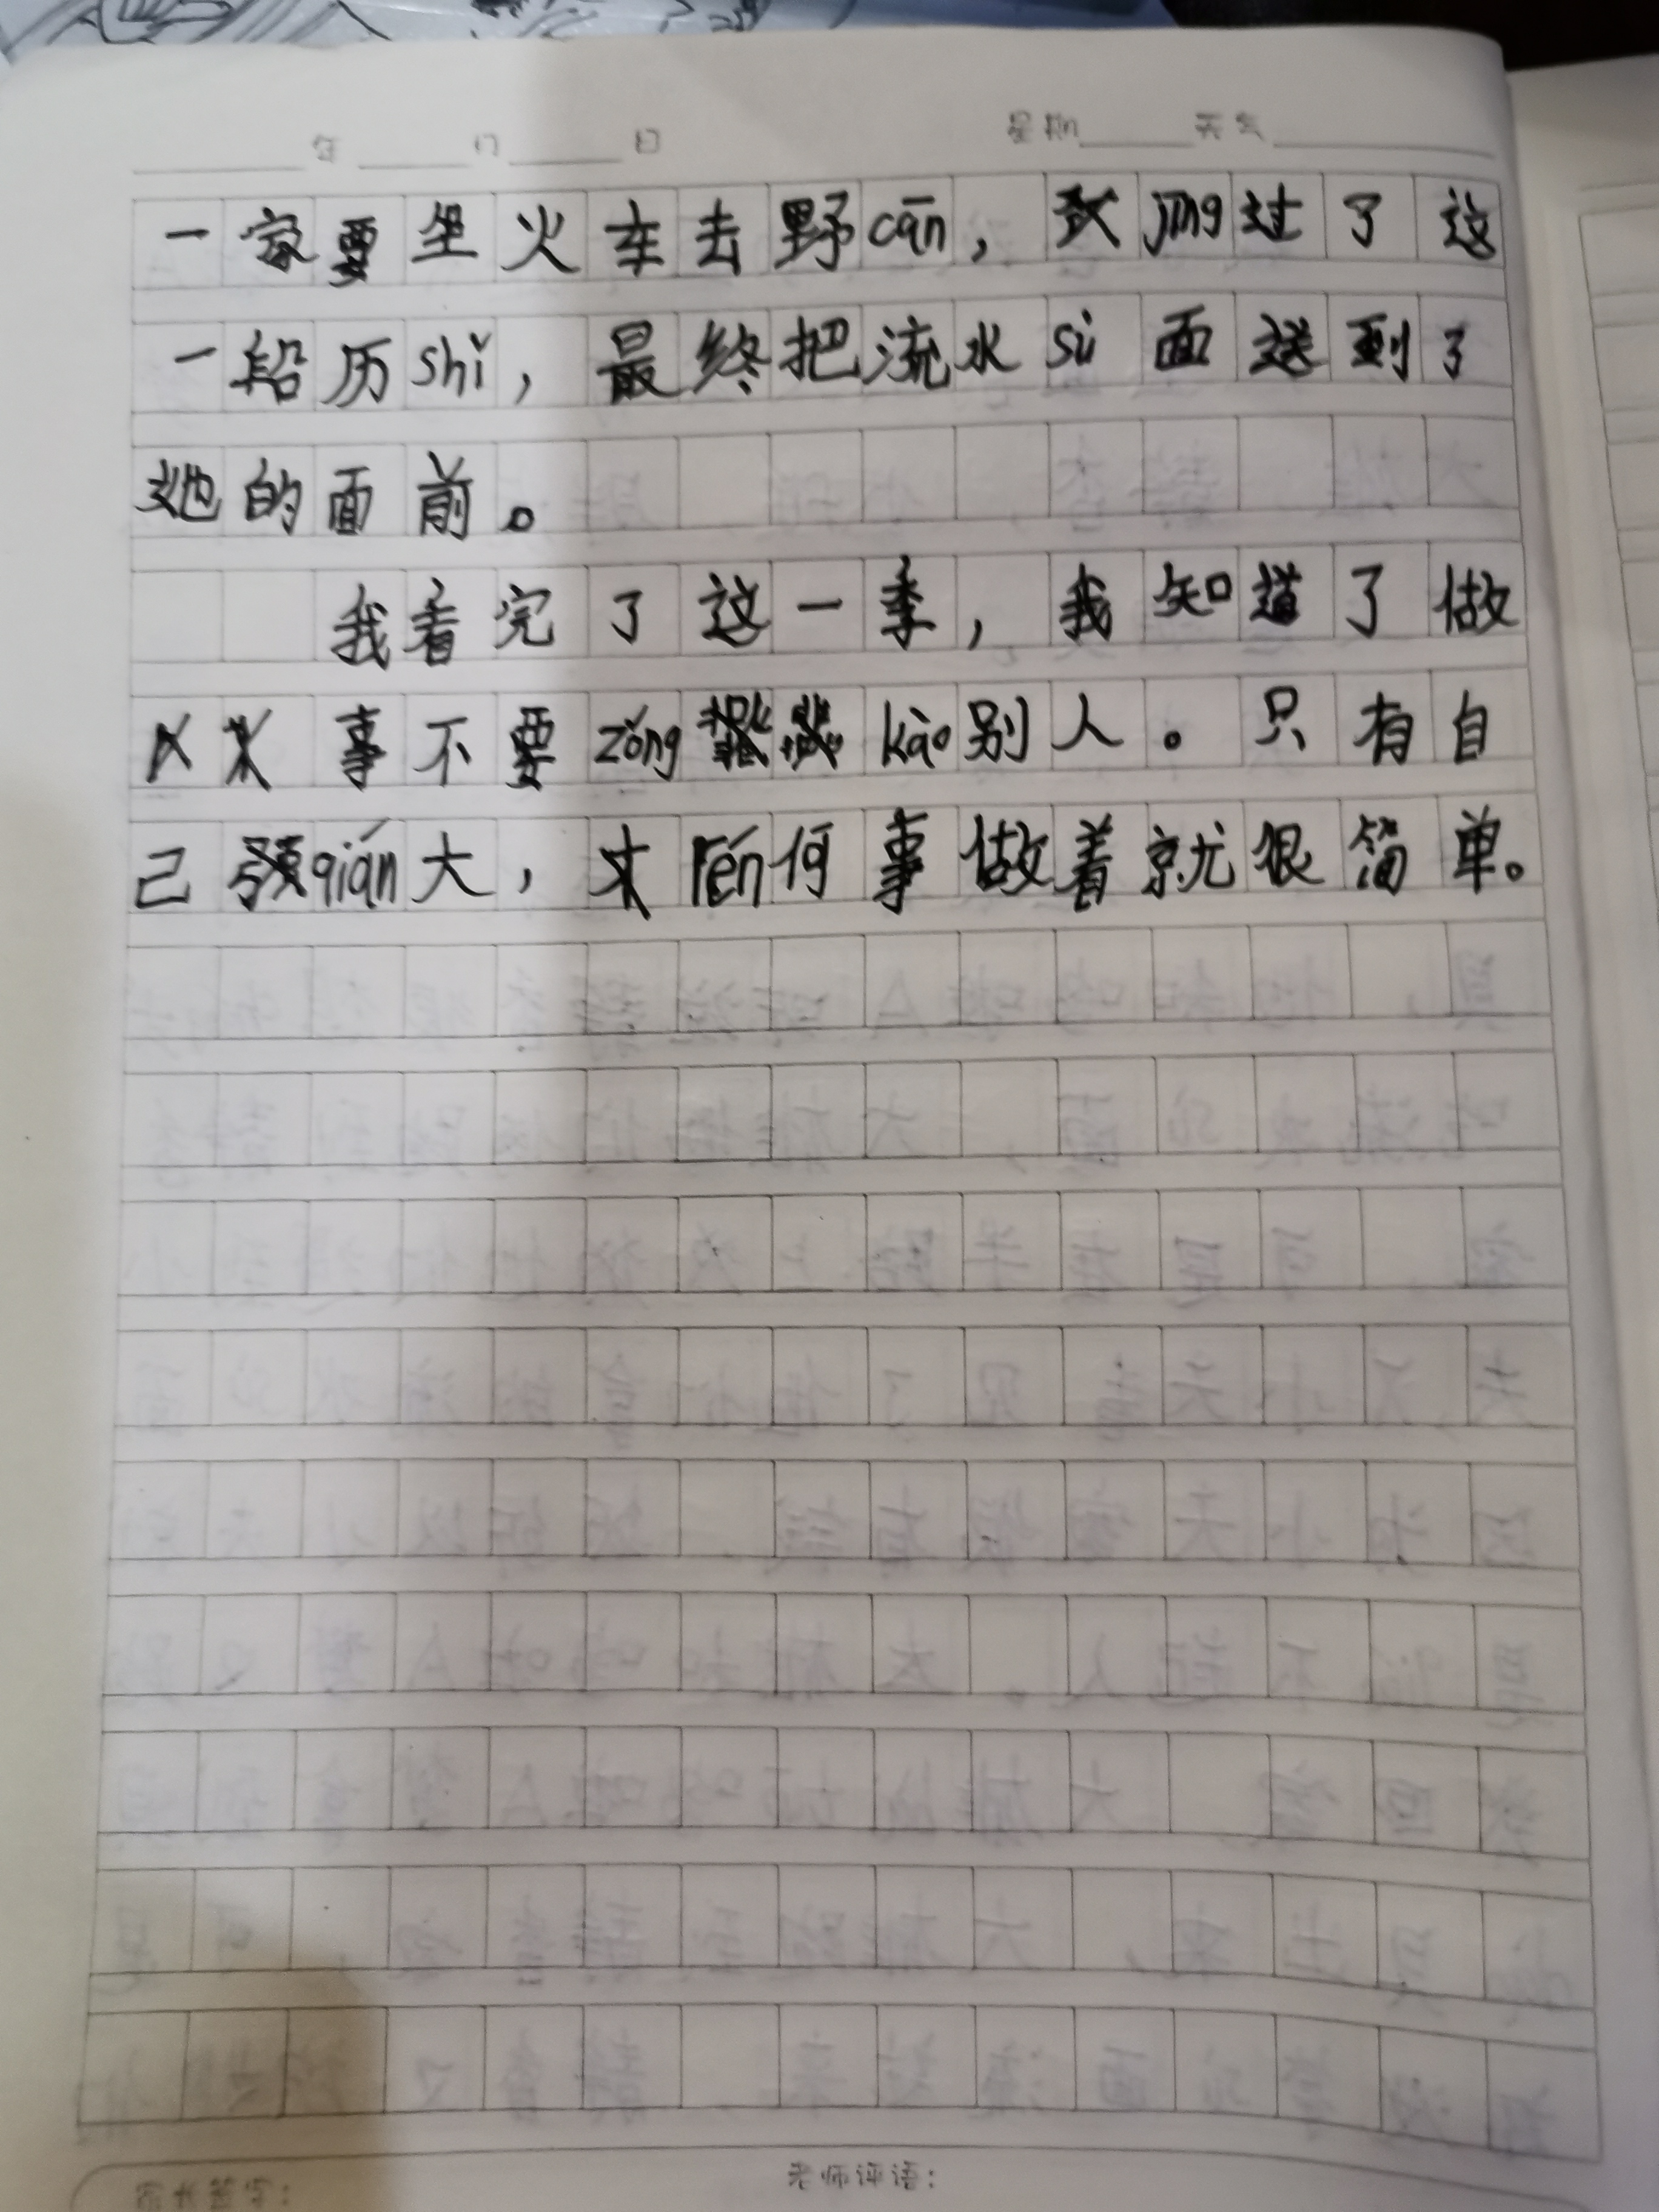 年 月 日 星期 天气
一家要坐火车去野cān，jīng过了这
一段历shǐ，最终把流水sù面送到了
她的面前。
我看完了这一季，我知道了做
事不要zǒng kào别人。只有自
己qián大，rén何事做着就很简单。
老师评语：
家长签字：